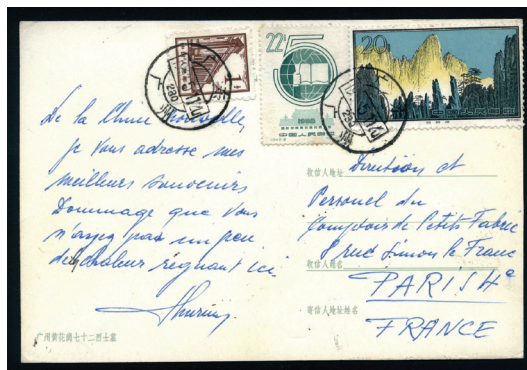 22
5
1958
中国人民邮政
20
广州
广州
De la Chine Nouvelle,
je vous adresse mes
meilleurs souvenirs
Dommage que vous
n'ayez pas un peu
de chaleur régnant ici.
广州黄花岗七十二烈士墓
收信人地址
Direction et
Personel du
Comptoir de Petits Fabric
rue Simon le Franc
收信人姓名
PARIS 4e
寄信人地址姓名
FRANCE